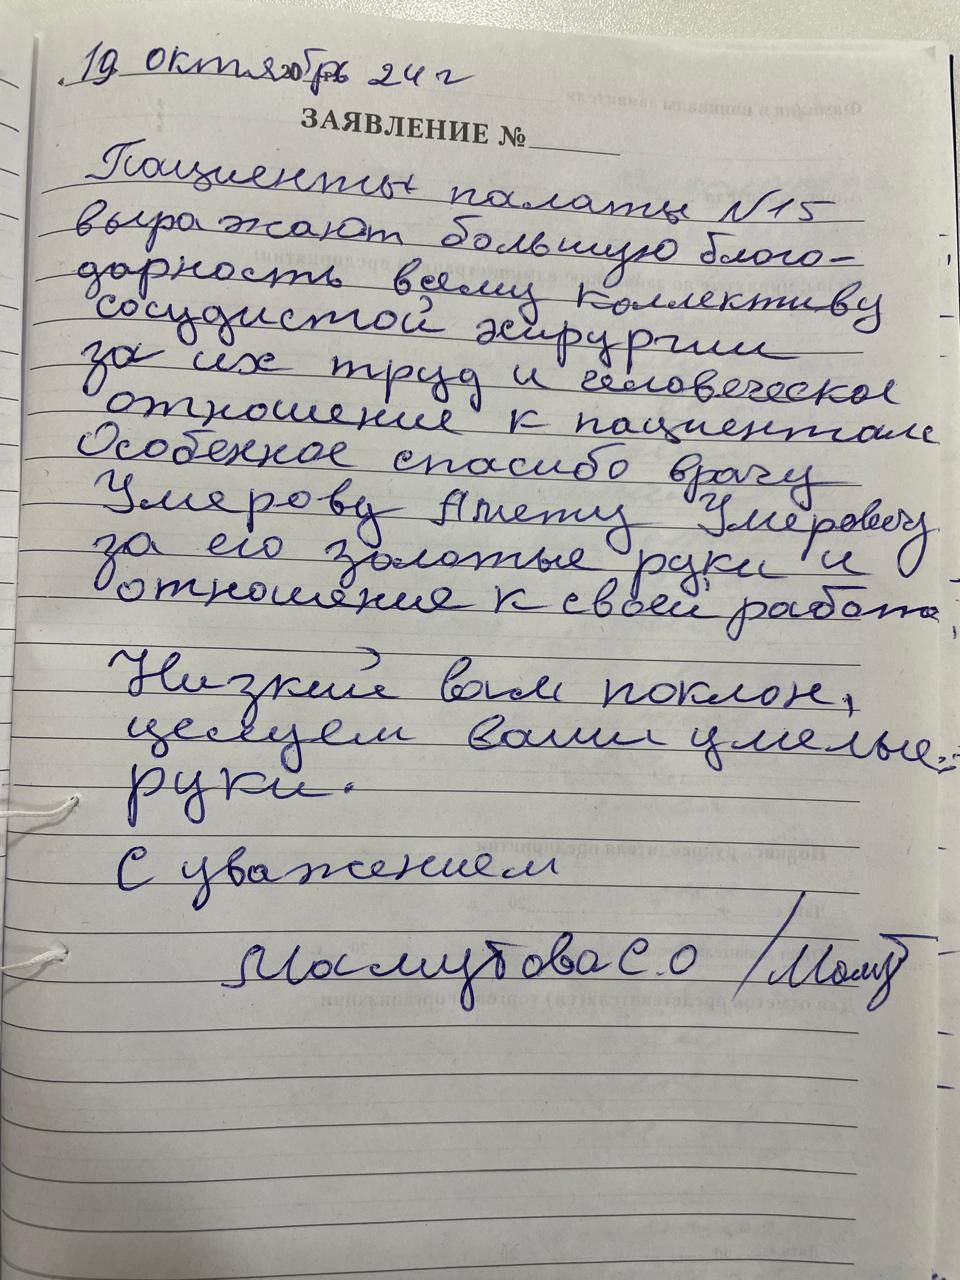 19 октябрь 24 г
ЗАЯВЛЕНИЕ №
Пациенты палаты N15
выражают большую благо-
дарность всему коллективу
сосудистой хирургии
за их труд и человеческое
отношение к пациентам
Особенное спасибо врачу
Умерову Амету Умеровичу
за его золотые руки и
отношение к своей работе
Низкий вам поклон,
целуем ваши умелые
руки.
С уважением
Мамутова С.О /Мамут